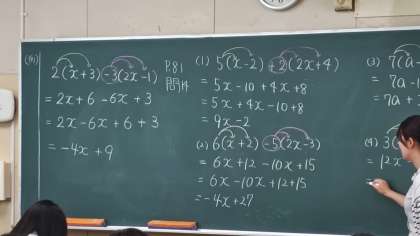 (例)
2(x+3)-3(2x-1)
=2x+6-6x+3
=2x-6x+6+3
=-4x+9
P.81
問14
(1) 5(x-2)+2(2x+4)
=5x-10+4x+8
=5x+4x-10+8
=9x-2
(2) 6(x+2)-5(2x-3)
=6x+12-10x+15
=6x-10x+12+15
=-4x+27
(3) 7(a-
=7a-
=7a+
(4) 3(
=12x